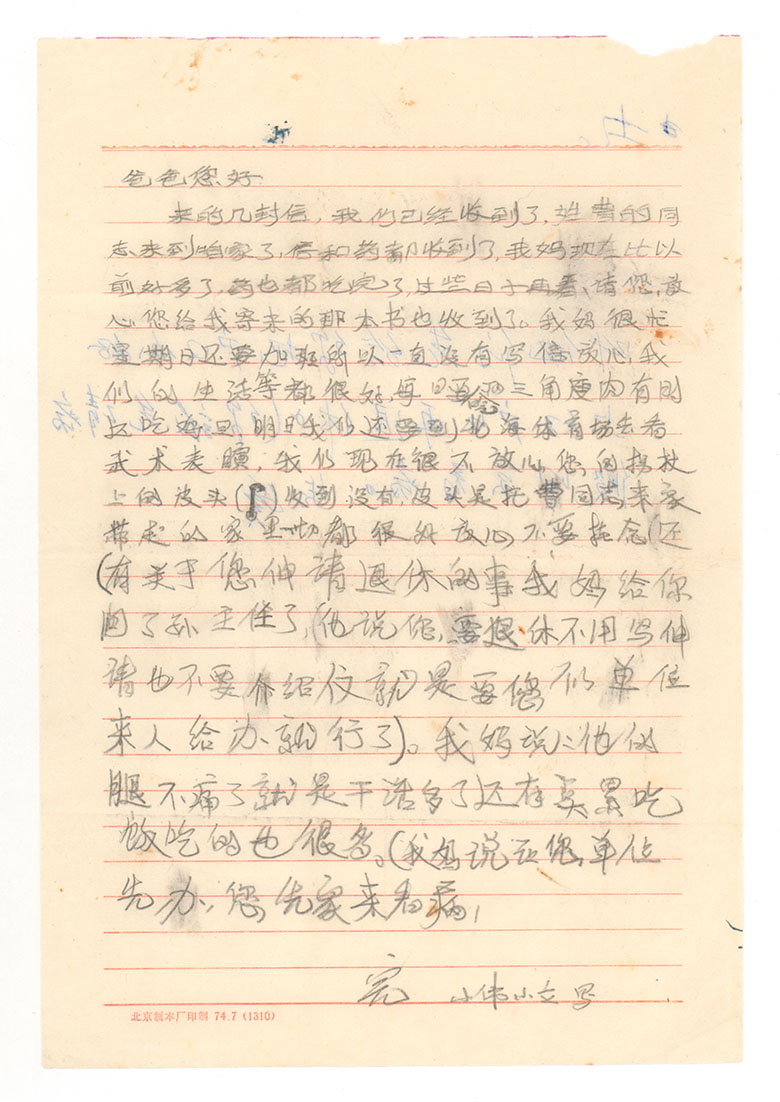 爸爸您好
来的几封信，我们已经收到了，姓曹的同
志来到咱家了，信和药都收到了，我妈现在比以
前好多了，药也都吃完了，过些日子再看、请您，放
心，您给我寄来的那本书也收到了。我妈很忙
星期日还要加班所以一直没有写信放心，我
们，的生活等都很好，每日要 三角瘦肉有时
还吃鸡旦明日我们还要到北海体育场去看
武术表演，我们现在很不放心，您，的拐杖
上的皮头()收到没有，皮头是托曹同志来家
带走的家里一切都很好放心不要挂念(还
(有关于您伸请退休的事我妈给你
问了孙主任了，(他说您，要退休不用写伸
请也不要介绍仪就是要您 单位
来人给办就行了)。我妈说：他的
腿不痛了就是干活多了还有点累吃
饭吃的也很多。(我妈说 您，单位
先办，您，先家来看病，
完 小伟小文写
北京制本厂印制 74.7 (1310)